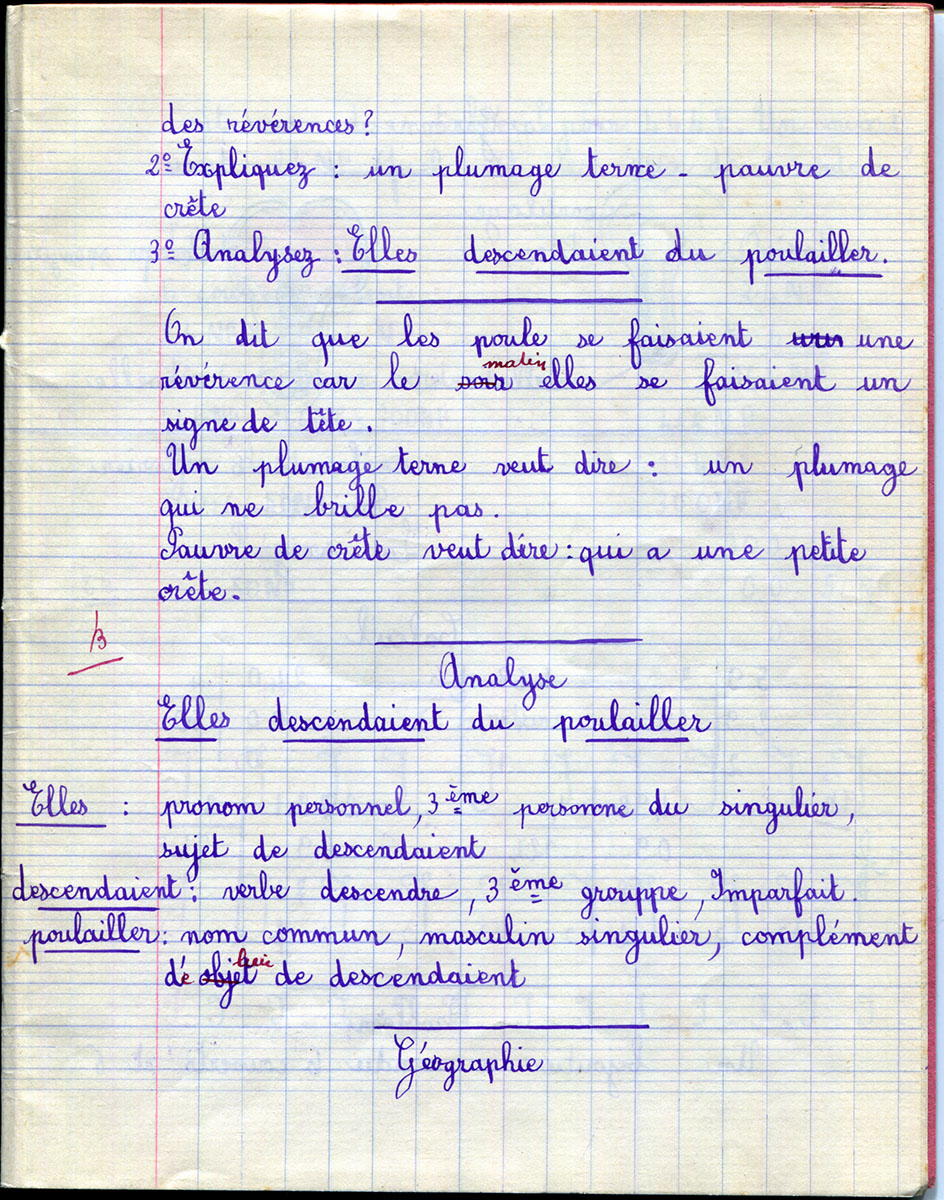 des révérences?
2º Expliquez : un plumage terne - pauvre de
crête
3º Analysez : Elles descendaient du poulailler.
On dit que les poule se faisaient une
matin
révérence car le soir elles se faisaient un
signe de tête.
Un plumage terne veut dire : un plumage
qui ne brille pas.
Pauvre de crête veut dire : qui a une petite
crête.
B
Analyse
Elles descendaient du poulailler
Elles : pronom personnel, 3ème personne du singulier,
sujet de descendaient
descendaient : verbe descendre, 3ème grouppe, Imparfait.
poulailler : nom commun, masculin singulier, complément
lieu
d'objet de descendaient
Géographie